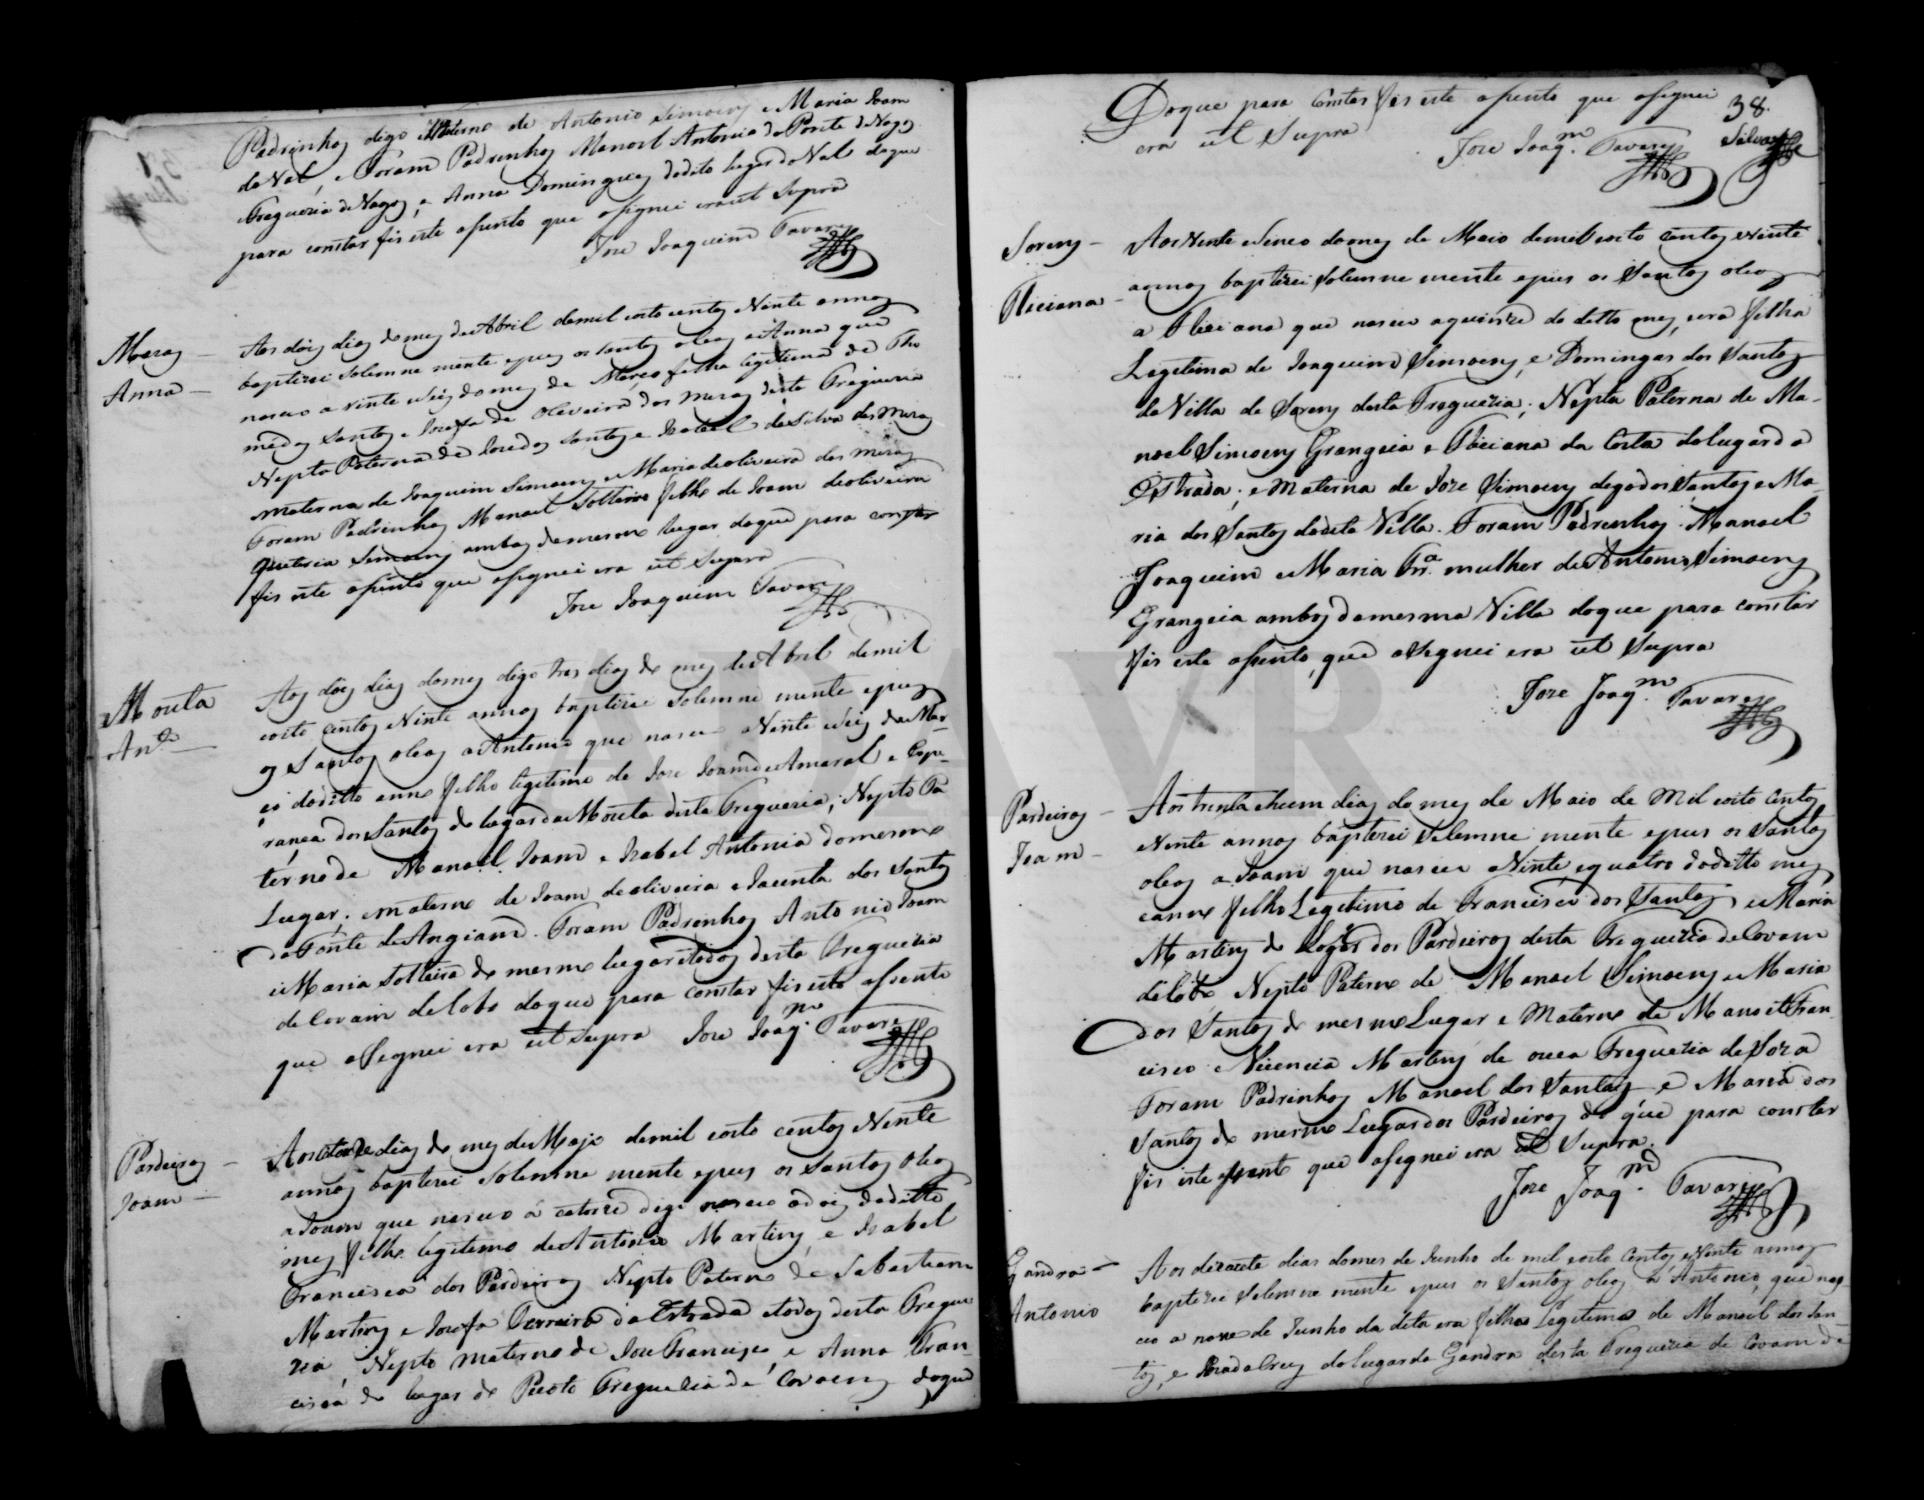 Padrinhos digo Materno de Antonio Simoens e Maria Joam
do Val, e Foram Padrinhos Manoel Antonio da Ponte de Vagos
Freguezia de Vagos, e Anna Domingues do dito lugar do Val doque
para constar fis este asento que asignei era ut supra
Joze Joaquim Tavares
Meras
Anna
Aos dois dias do mes de Abril de mil oito centos Vinte annos
baptizei solemne mente e pus os santos oleos a Anna que
nasceo a vinte e seis do mes de Março filha legitima de Tho
me dos Santos e Jozefa de oliveira das meras desta Freguezia
Nepta Paterna de Joze dos Santos e Izabel da Silva das Meras
materna de Joaquim Simoens e Maria de oliveira das meras
Foram Padrinhos Manoel Solteiro filho de Joam de oliveira
Quiteria Simoens ambos do mesmo lugar doque para constar
fis este asento que asignei era ut supra
Joze Joaquim Tavares
Mouta
Anto
Aos dois dias do mes digo tres dias do mes de Abril de mil
e oito centos e Vinte annos baptizei solemne mente e pus
os Santos oleos a Antonio que nasceo a Vinte e seis de Mar-
ço do ditto anno filho legitimo de Joze Joam de Amaral e Espe-
rança dos Santos do lugar da Mouta desta Freguezia; Nepto Pa
terno de Manoel Joam e Izabel Antonia do mesmo
Lugar; e materno de Joam de oliveira e Jacinta dos Santos
da Fonte de Angiam. Foram Padrinhos Antonio Joam
e Maria Solteira do mesmo lugar e todos desta Freguezia
de Covam de Lobo doque para constar fis este asento
que asignei era ut supra Joze Joaqm. Tavares
Pardeiros
Joam
Aos dias do mes de Mayo de mil e oito centos e Vinte
annos baptizei solemne mente e pus os Santos oleos
a Joam que nasceo a catorze digo nasceo a dois do ditto
mes filho legitimo de Antonio Martins e Izabel
Francisca dos Pardeiros Nepto Paterno de Sabastiam
Martins e Jozefa Ferreira da Estrada e todos desta Fregue
zia, Nepto materno de Joze Francisco, e Anna Fran-
cisca do lugar de Freguezia de Covoens doque
38.
Silva
Doque para Constar fis este asento que asignei
era ut Supra
Joze Joaqm. Tavares
Sorens
Ticiana
Aos Vinte e sinco do mes de Maio de mil e oito centos e vinte
annos baptizei solemne mente e pus os Santos oleos
a Ticiana que nasceo a quinze do ditto mes, e era filha
Legitima de Joaquim Simoens, e Domingas dos Santos
da Villa de Sorens desta Freguezia; Nepta Paterna de Ma-
noel Simoens Grangeia e Ticiana da Costa do lugar da
Estrada; e Materna de Joze Simoens digo dos Santos e Ma-
ria dos Santos da dita Villa. Foram Padrinhos Manoel
Joaquim e Maria Fra. mulher de Antonio Simoens
Grangeia ambos da mesma Villa doque para constar
fis este asento, que asignei era ut Supra
Joze Joaqm. Tavares
Pardeiros
Joam
Aos trinta e hum dias do mes de Maio de Mil e oito centos
e Vinte annos baptizei solemne mente e pus os Santos
oleos a Joam que nasceo a Vinte e quatro do ditto mes
e anno filho Legitimo de Francisco dos Santos e Maria
Martins do Logar dos Pardeiros desta Freguezia de Covam
de lobo Nepto Paterno de Manoel Simoens e Maria
dos Santos do mesmo Lugar e Materno de Manoel Fran-
cisco e Vicencia Martins de ouca Freguezia de Soza
Foram Padrinhos Manoel dos Santos e Maria dos
Santos do mesmo Lugar dos Pardeiros do que para constar
fis este asento que asignei era ut Supra.
Joze Joaqm. Tavares
Gandra
Antonio
Aos dezacete dias do mes de Junho de mil e oito centos e Vinte annos
baptizei solemne mente e pus os Santos oleos a Antonio, que nas-
ceo a nove de Junho da dita era filho Legitimo de Manoel dos San-
tos, e do lugar da Gandra desta Freguezia de Covam de
ADAVR